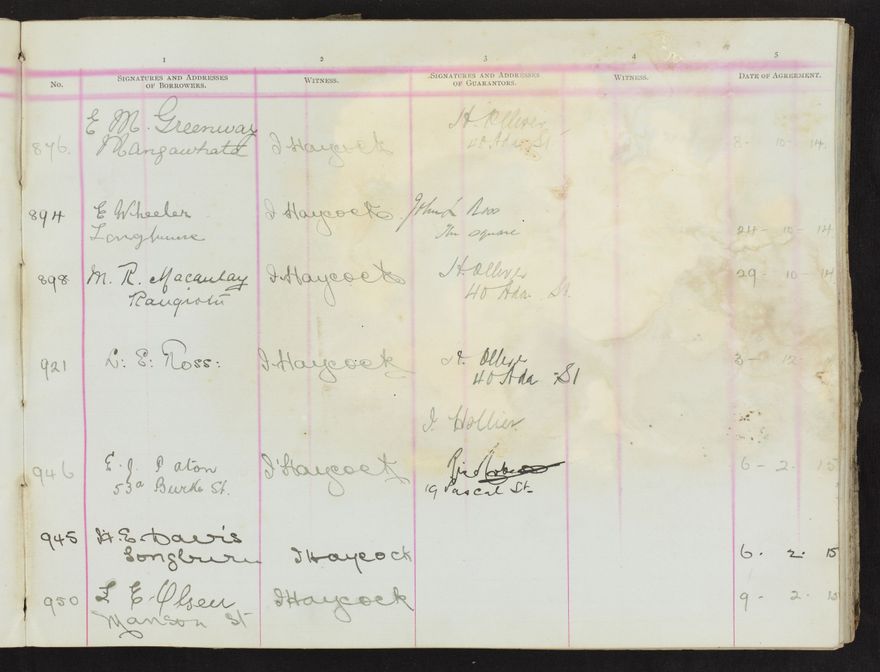 1 2 3 4 5
No. SIGNATURES AND ADDRESSES OF BORROWERS. WITNESS. SIGNATURES AND ADDRESSES OF GUARANTORS. WITNESS. DATE OF AGREEMENT.
E M. Greenway H. Olliver
876. I Haycock 40 Ada St 8 - 10 - 14
894 E Wheeler I Haycock John L Ross
Longburn The square 24 - 10 - 14
898 M. R. Macaulay I Haycock H. Olliver 29 - 10 - 14
Rangiotu 40 Ada St.
921 L: E: Ross: I Haycock H. Olliver 3 - 12
40 Ada St
I Hollier
946 E. J. Paton I Haycock 6 - 2. 15
53a Burke St. 19 Pascal St
945 H. E. Davis
Longburn I Haycock 6. 2. 15
950 E. Olsen I Haycock 9 - 2. 15
Manson St